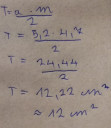 T = a · m / 2
T = 5,2 · 4,7 / 2
T = 24,44 / 2
T = 12,22 cm²
≈ 12 cm²